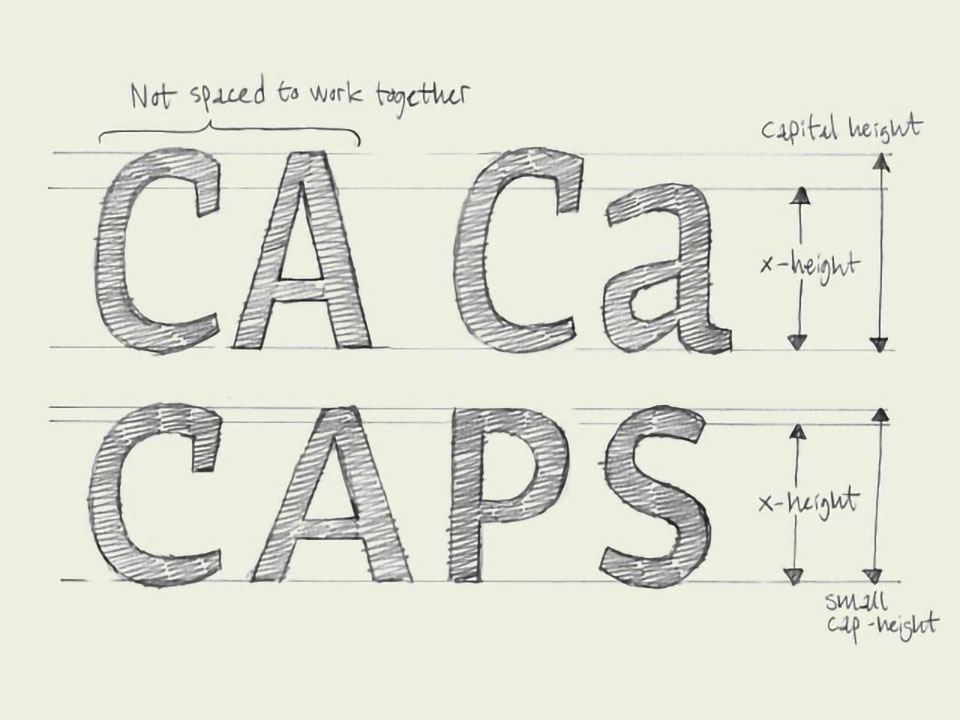 Not spaced to work together
capital height
CA Ca
x-height
CAPS
x-height
small
cap-height